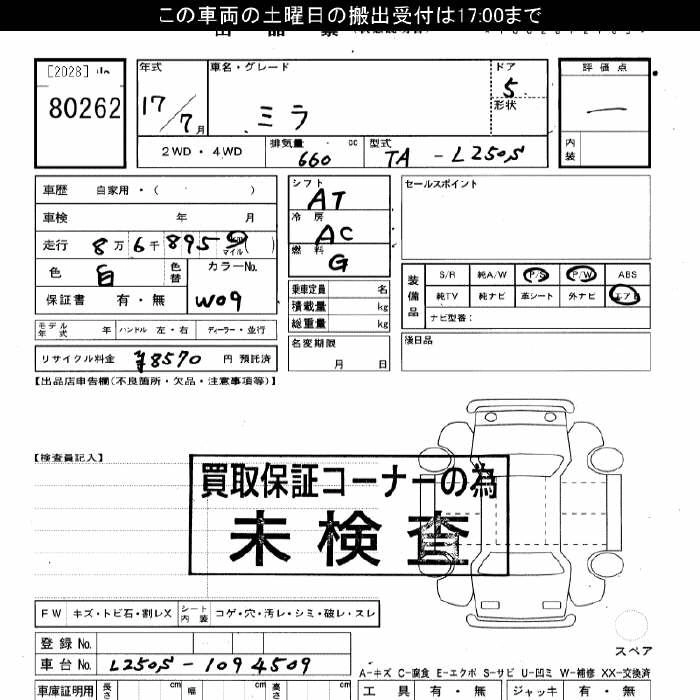 この車両の土曜日の搬出受付は17:00まで
[2028]
80262
年式
17/7月
車名・グレード
ミラ
ドア
5
形状
評価点
一
内装
2WD・4WD
排気量 660 cc
型式 TA - L250S
車歴 自家用・( )
車検 年 月
走行 8万6千895 km マイル ( )
色 白 色替
カラーNo. W09
保証書 有・無
モデル年式 年 ハンドル 左・右 ディーラー・並行
リサイクル料金 ¥8570 円 預託済
シフト AT
冷房 AC
燃料 G
乗車定員 名
積載量 kg
総重量 kg
名変期限
月 日
セールスポイント
装備品
S/R 純A/W P/S P/W ABS
純TV 純ナビ 革シート 外ナビ エアB
ナビ型番:
後日品
【出品店申告欄(不良箇所・欠品・注意事項等)】
【検査員記入】
買取保証コーナーの為
未検査
FW キズ・トビ石・割レX シート内装 コゲ・穴・汚レ・シミ・破レ・スレ
登録No.
車台No. L250S-1094509
スペア
A-キズ C-腐食 E-エクボ S-サビ U-凹ミ W-補修 XX-交換済
車庫証明用 長さ cm 幅 cm 高さ cm
工具 有・無 ジャッキ 有・無